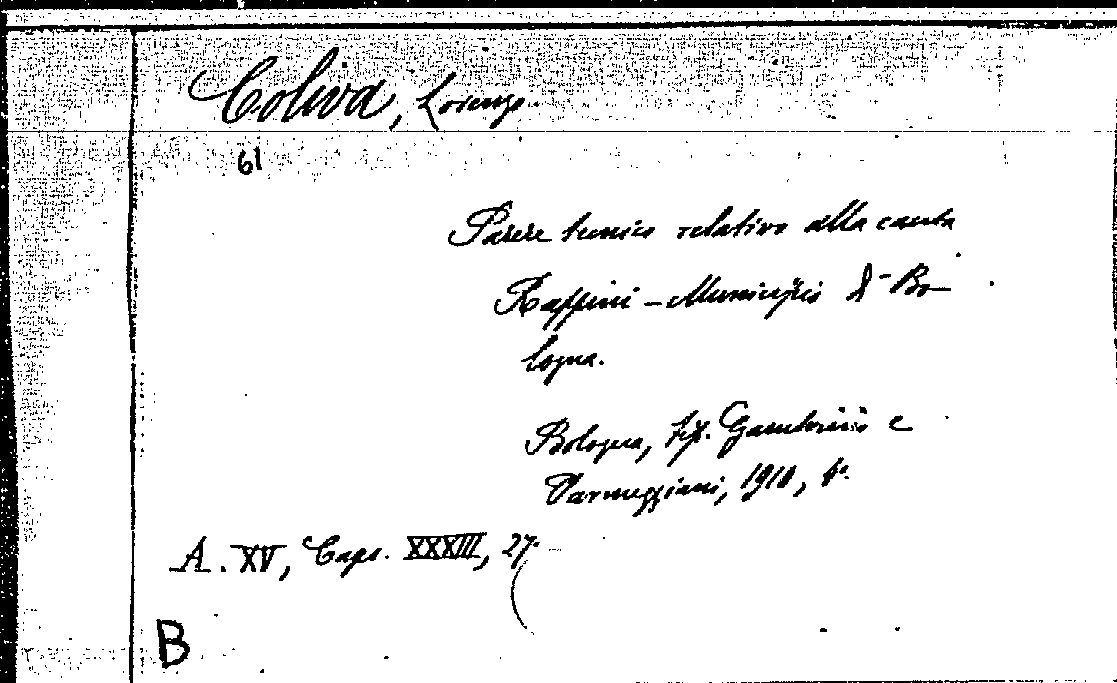 Coliva, Lorenzo.
61
Parere tecnico relativo alla causa
Raffini - Municipio di Bo-
logna.
Bologna, tip. Gamberini e
Parmeggiani, 1910, 4°.
A. XV, Caps. XXXIII, 27.
B